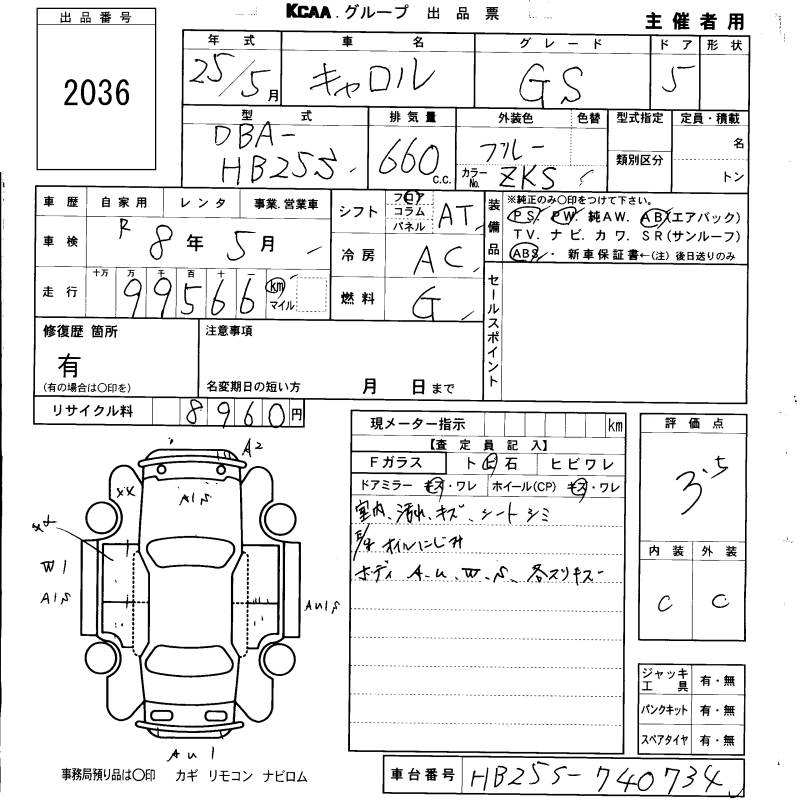 KCAA.グループ 出品票
主催者用
出品番号
2036
年式 車名 グレード ドア 形状
25/5月 キャロル GS 5
型式 排気量 外装色 色替 型式指定 定員・積載
DBA-
HB25S 660 c.c. ブルー カラーNo. ZKS 類別区分 名
トン
車歴 自家用 レンタ 事業.営業車
車検 R 8年 5月
走行 十万 万 千 百 十 一
99566 km マイル
シフト フロア コラム パネル AT
冷房 AC
燃料 G
装備品 ※純正のみ○印をつけて下さい。
PS. PW. 純AW. AB(エアバック)
TV. ナビ. カワ. SR(サンルーフ)
ABS・ 新車保証書←(注) 後日送りのみ
セールスポイント
修復歴 箇所
有
(有の場合は○印を)
注意事項
名変期日の短い方 月 日まで
リサイクル料 8960円
現メーター指示 km
【査定員記入】
Fガラス ト ビ 石 ヒビワレ
ドアミラー キズ・ワレ ホイール(CP) キズ・ワレ
室内、汚れ、キズ、シートシミ
E/g オイルにじみ
ボディ A.U.W.S、各スリキズ
評価点
3.5
内装 外装
C C
A2
A1S
XX
XX
W1
A1S
AU1S
AU1
ジャッキ工具 有・無
パンクキット 有・無
スペアタイヤ 有・無
事務局預り品は○印 カギ リモコン ナビロム
車台番号 HB25S-740734